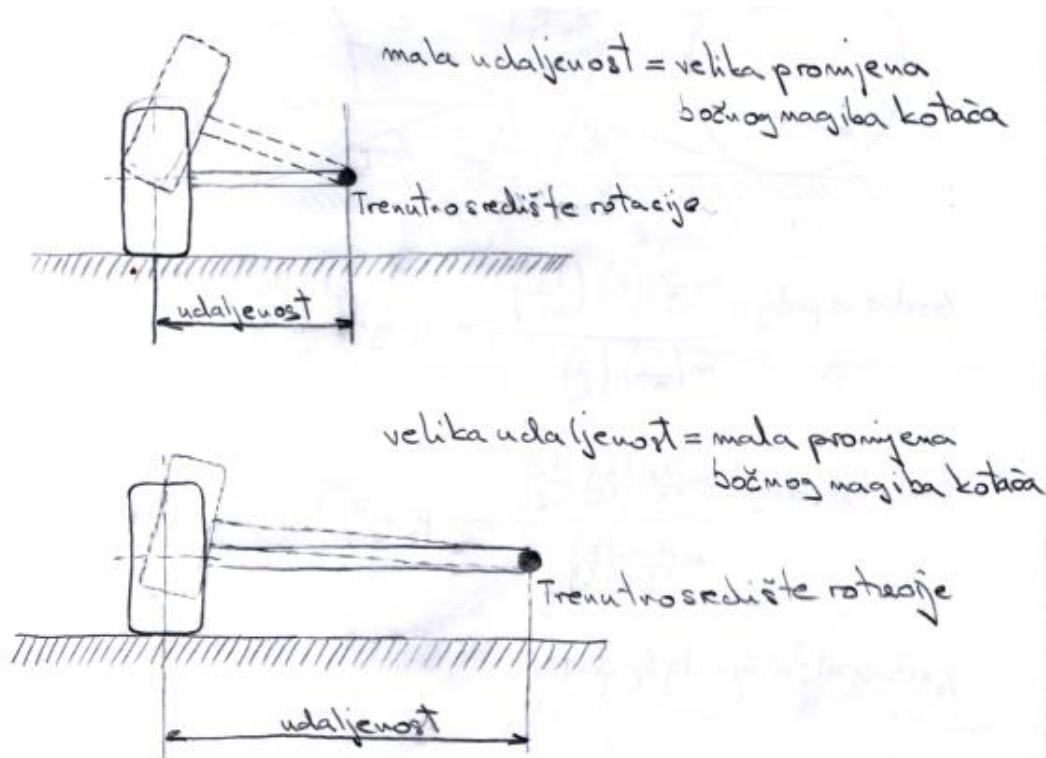 mala udaljenost = velika promjena
bočnog nagiba kotača
Trenutno središte rotacije
udaljenost
velika udaljenost = mala promjena
bočnog nagiba kotača
Trenutno središte rotacije
udaljenost